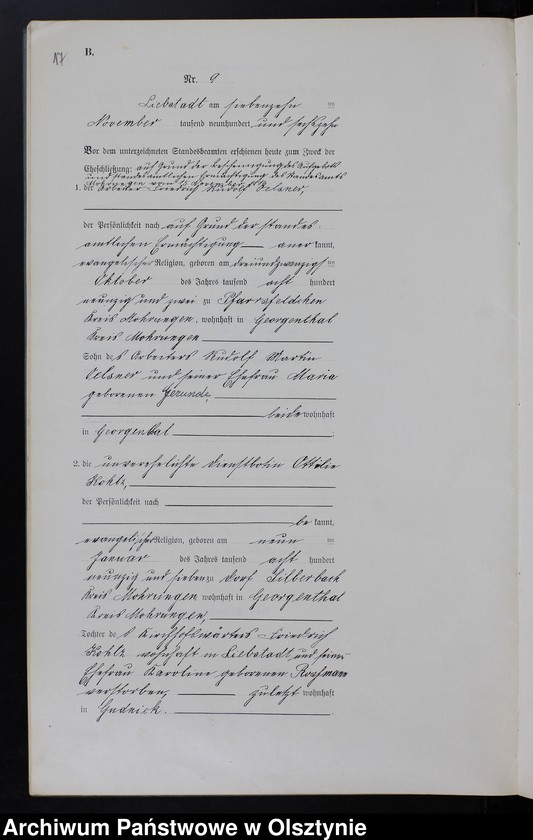 17
B.
Nr. 9
Liebstadt am siebenzehn ten
November tausend neunhundert und sechszehn
Vor dem unterzeichneten Standesbeamten erschienen heute zum Zweck der
Eheschließung: auf Grund der Bescheinigung des Aufgebots
und standesamtlichen Ermächtigung des Standesamts
Mohrungen vom November
1. der Arbeiter Friedrich Rudolf Oelsner,
der Persönlichkeit nach auf Grund der standes-
amtlichen Ermächtigung anerkannt,
evangelischer Religion, geboren am dreiundzwanzigsten
Oktober des Jahres tausend acht hundert
neunzig und zwei zu Pfarrsfeldchen
Kreis Mohrungen, wohnhaft in Georgenthal
Kreis Mohrungen
Sohn des Arbeiters Rudolf Martin
Oelsner und seiner Ehefrau Maria
geborenen Jezunde,
beide wohnhaft
in Georgenthal
2. die unverehelichte Dienstbotin Ottilie
Kohtz,
der Persönlichkeit nach
bekannt,
evangelischer Religion, geboren am neun ten
Januar des Jahres tausend acht hundert
neunzig und sieben zu Dorf Silberbach
Kreis Mohrungen wohnhaft in Georgenthal
Kreis Mohrungen,
Tochter des Kirchhofswärters Friedrich
Kohtz wohnhaft in Liebstadt und seiner
Ehefrau Karoline geborenen Roßmann
verstorben, zuletzt wohnhaft
in Gudnick.
Archiwum Państwowe w Olsztynie